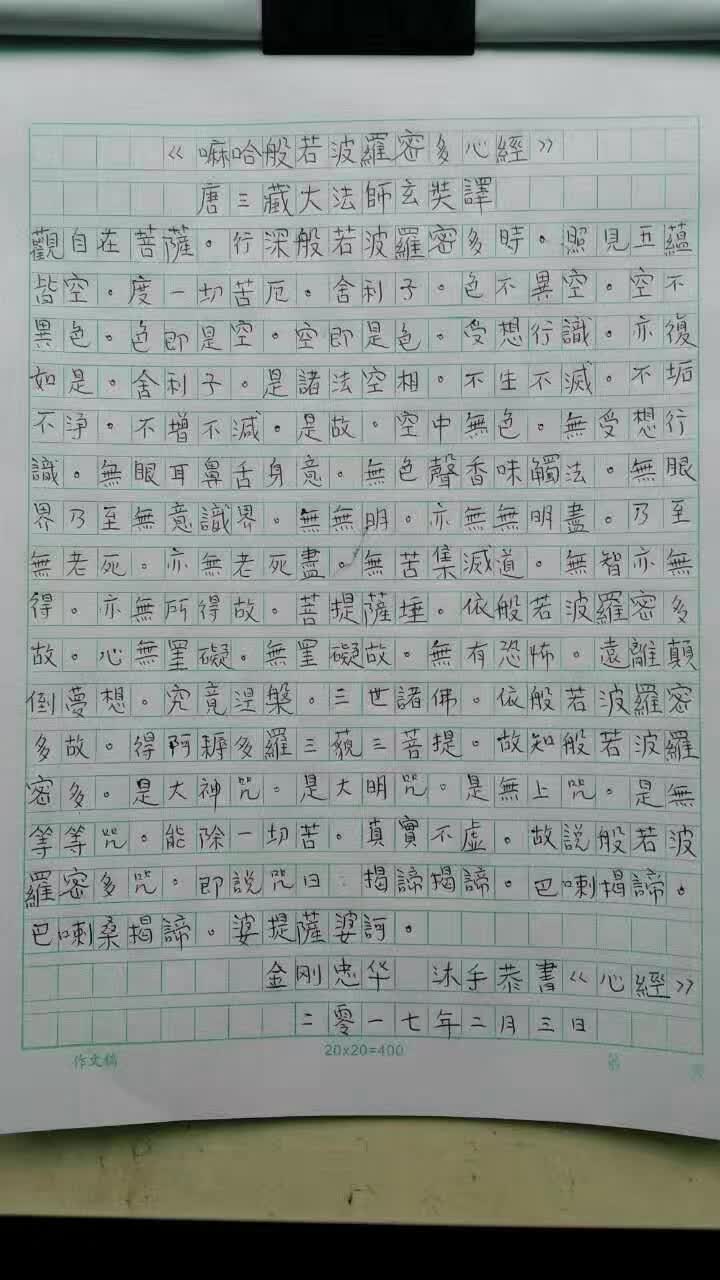 《嘛哈般若波羅密多心經》
唐三藏大法師玄奘譯
觀自在菩薩。行深般若波羅密多時。照見五蘊
皆空。度一切苦厄。舍利子。色不異空。空不
異色。色即是空。空即是色。受想行識。亦復
如是。舍利子。是諸法空相。不生不滅。不垢
不淨。不增不減。是故。空中無色。無受想行
識。無眼耳鼻舌身意。無色聲香味觸法。無眼
界乃至無意識界。無無明。亦無無明盡。乃至
無老死。亦無老死盡。無苦集滅道。無智亦無
得。亦無所得故。菩提薩埵。依般若波羅密多
故。心無罣礙。無罣礙故。無有恐怖。遠離顛
倒夢想。究竟涅槃。三世諸佛。依般若波羅密
多故。得阿耨多羅三藐三菩提。故知般若波羅
密多。是大神咒。是大明咒。是無上咒。是無
等等咒。能除一切苦。真實不虛。故説般若波
羅密多咒。即説咒曰：揭諦揭諦。巴喇揭諦。
巴喇桑揭諦。婆提薩婆訶。
金刚忠华 沐手恭書《心經》
二零一七年二月三日
作文稿 20x20=400 第 页